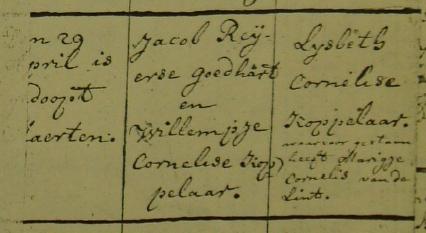 n 29
pril is
doopt
aerten.
Jacob Reij-
erse goedhart
en
Willempje
Cornelise Kop
pelaar.
Lysbeth
Cornelise
Koppelaar.
waarvoor gestaan
heeft Marigje
Cornelis van de
Lint.